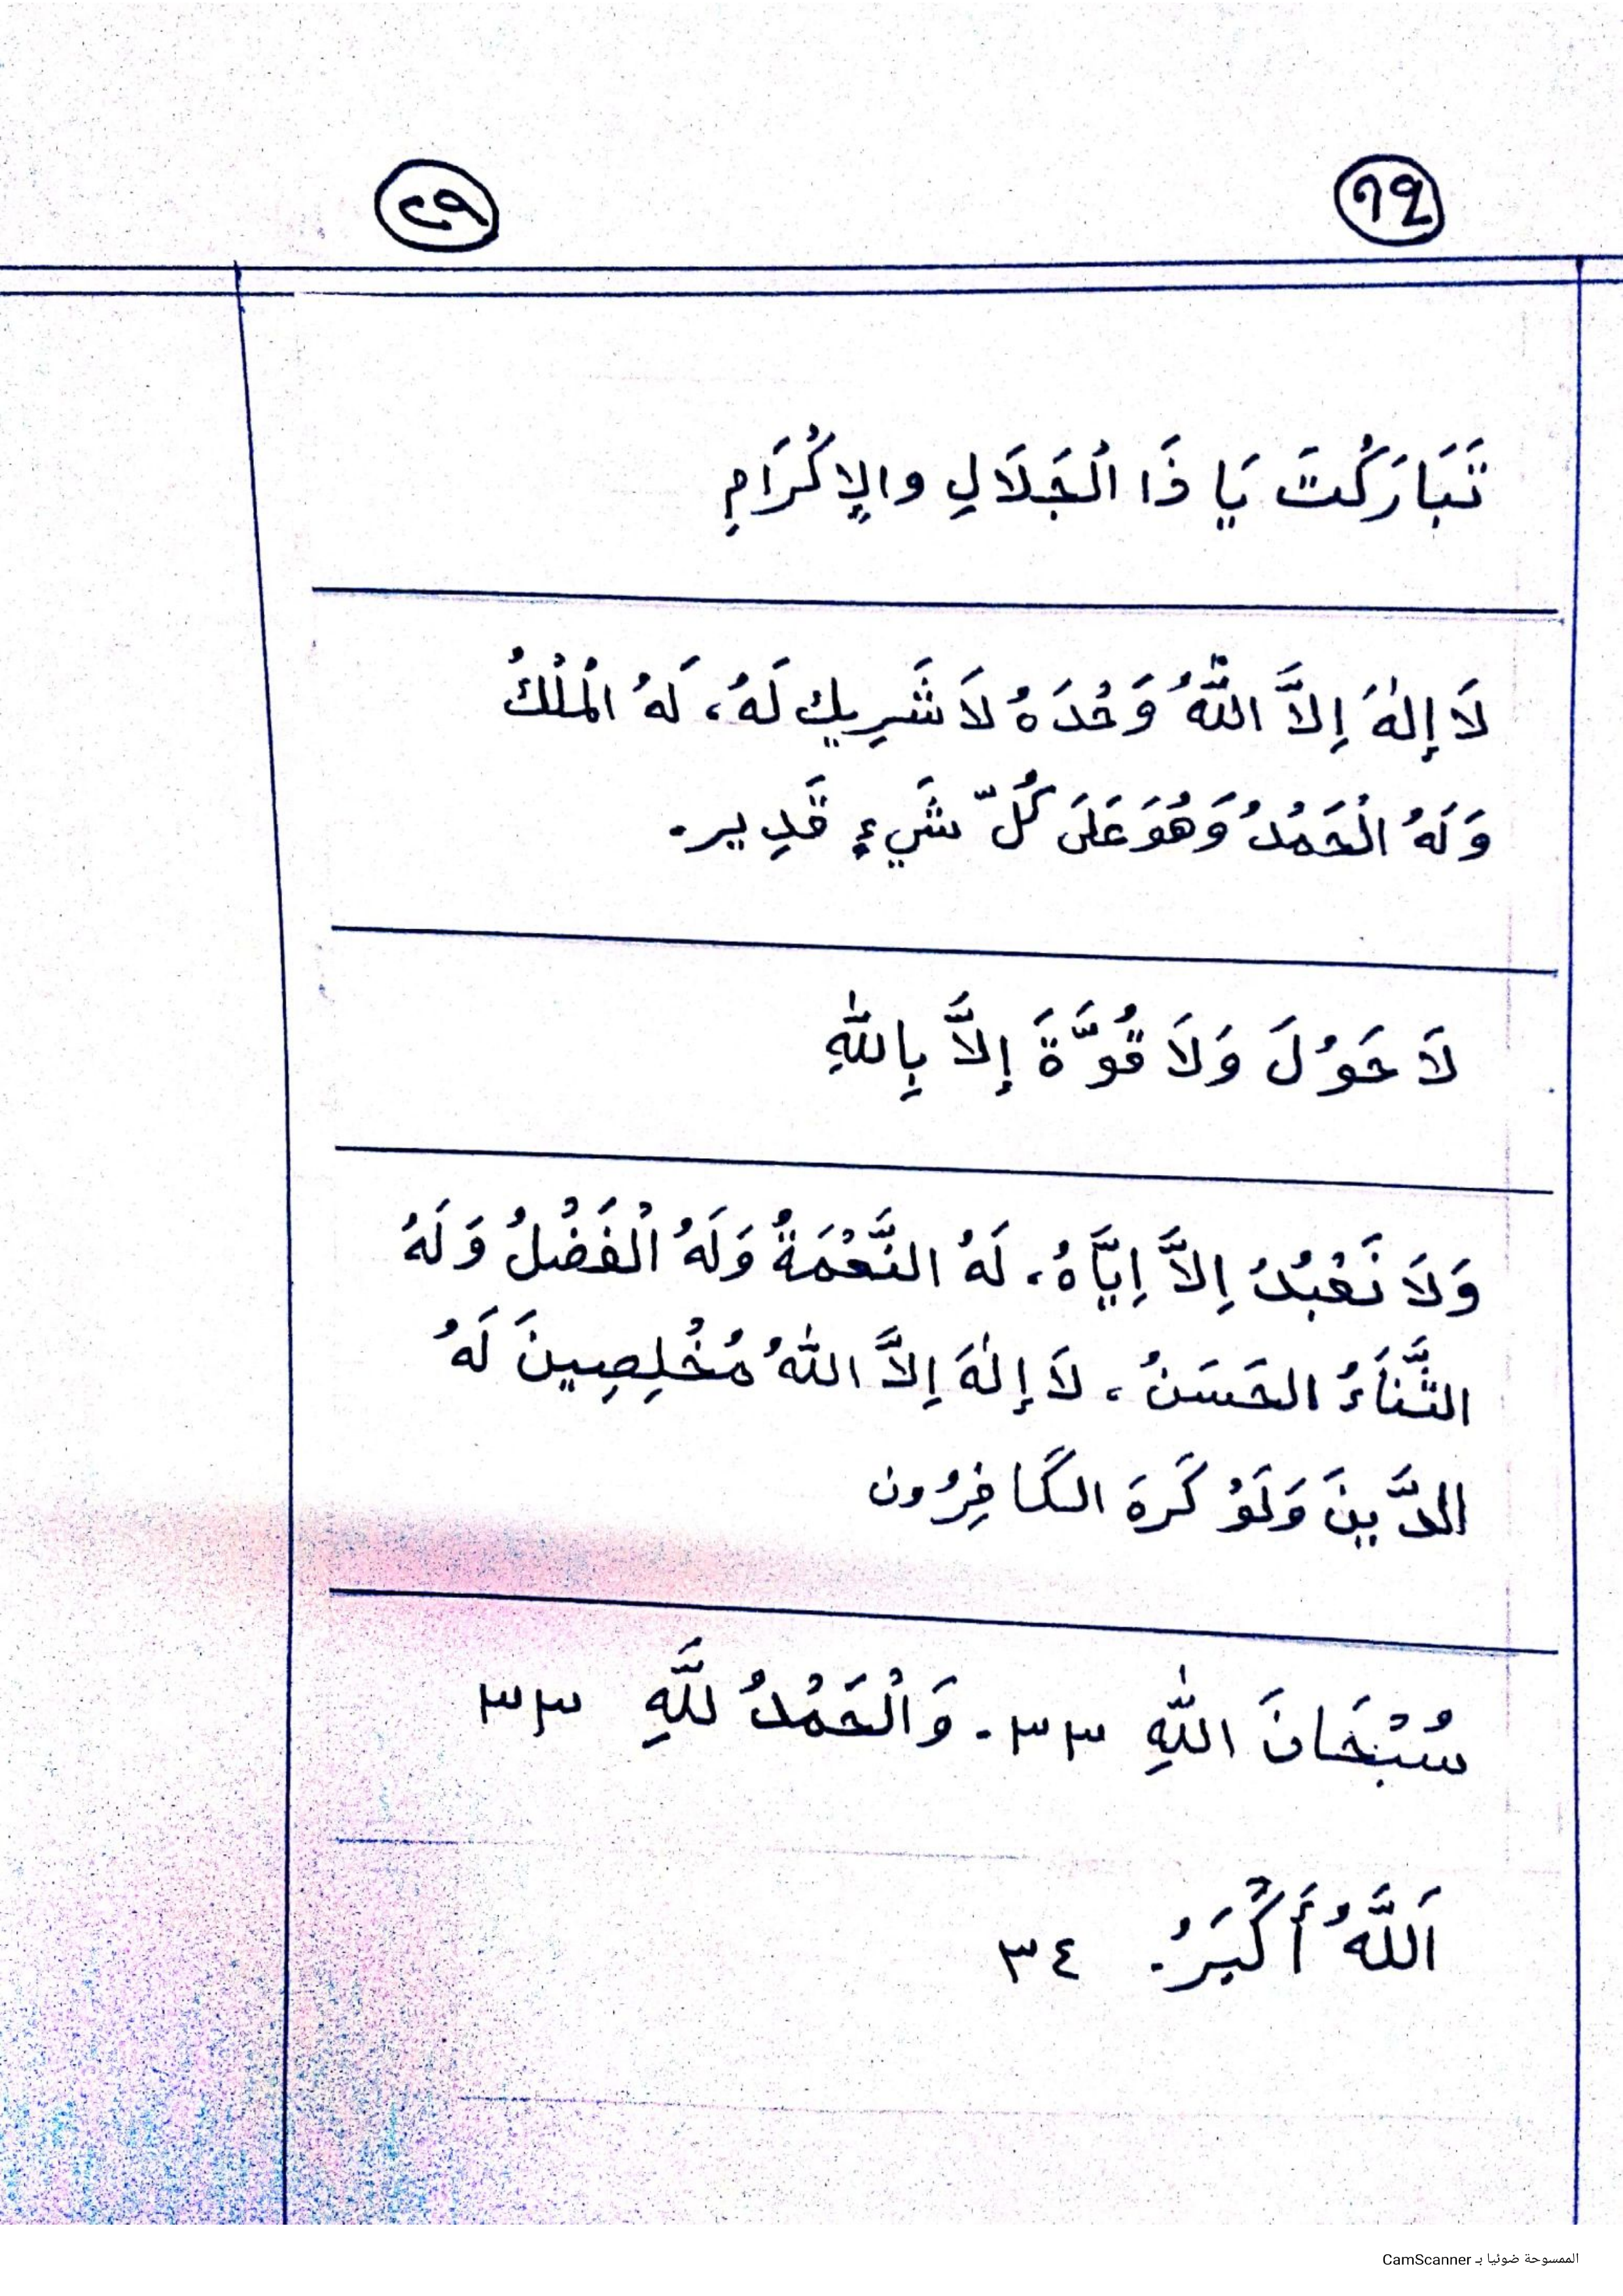 تَبَارَكْتَ يَا ذَا الْجَلَالِ والإِكْرَامِ
لَا إِلٰهَ إِلاَّ اللّٰهُ وَحْدَهُ لَا شَرِيكَ لَهُ، لَهُ الْمُلْكُ
وَلَهُ الْحَمْدُ وَهُوَ عَلَى كُلّ شَيءٍ قَدِير.
لَا حَوْلَ وَلَا قُوَّةَ إِلاَّ بِاللّٰهِ
وَلَا نَعْبُدُ إِلاَّ إِيَّاهُ، لَهُ النَّعْمَةُ وَلَهُ الْفَضْلُ وَلَهُ
الثَّنَاءُ الحَسَنُ، لَا إِلٰهَ إِلاَّ اللّٰهُ مُخْلِصِينَ لَهُ
الدَّينَ وَلَوْ كَرِهَ الكَافِرُون
سُبْحَانَ اللّٰهِ ٣٣. وَالْحَمْدُ لَلَّهِ ٣٣
اَللَّهُ أَكْبَرُ. ٣٤
الممسوحة ضوئيا بـ CamScanner